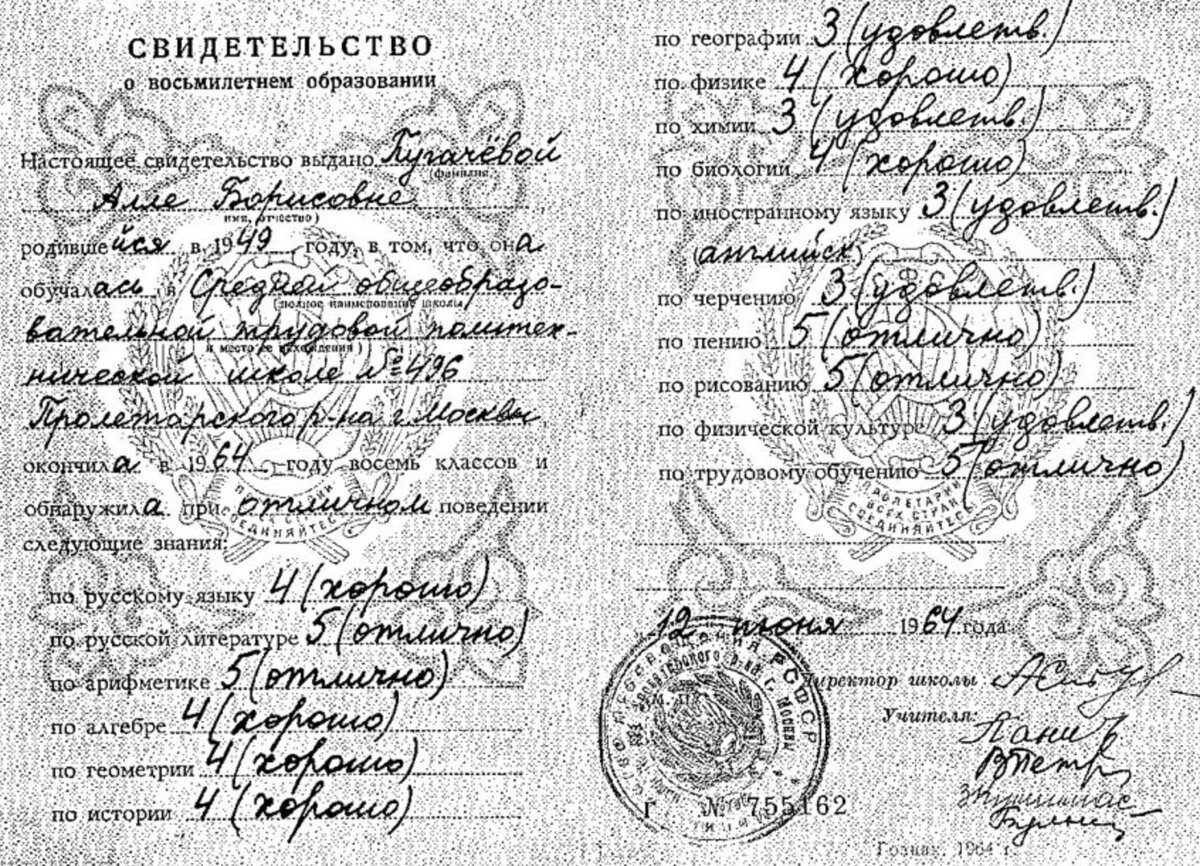 СВИДЕТЕЛЬСТВО
о восьмилетнем образовании
Настоящее свидетельство выдано Пугачёвой
(фамилия,
Алле Борисовне
имя, отчество)
родившейся в 1949 году, в том, что она
обучалась в Средней общеобразо-
(полное наименование школы
вательной трудовой политех-
и место ее нахождения)
нической школе № 496
Пролетарского р-на г. Москвы
окончила в 1964 году восемь классов и
обнаружила при отличном поведении
следующие знания:
по русскому языку 4 (хорошо)
по русской литературе 5 (отлично)
по арифметике 5 (отлично)
по алгебре 4 (хорошо)
по геометрии 4 (хорошо)
по истории 4 (хорошо)
по географии 3 (удовлетв.)
по физике 4 (хорошо)
по химии 3 (удовлетв.)
по биологии 4 (хорошо)
по иностранному языку 3 (удовлетв.)
(английск)
по черчению 3 (удовлетв.)
по пению 5 (отлично)
по рисованию 5 (отлично)
по физической культуре 3 (удовлетв.)
по трудовому обучению 5 (отлично)
ПРОЛЕТАРИИ
ВСЕХ СТРАН
СОЕДИНЯЙТЕСЬ
12 июня 1964 года
Директор школы
Учителя:
просвещения РСФСР
Пролетарского р-на г. Москвы
Г № 755162
Гознак. 1964 г.